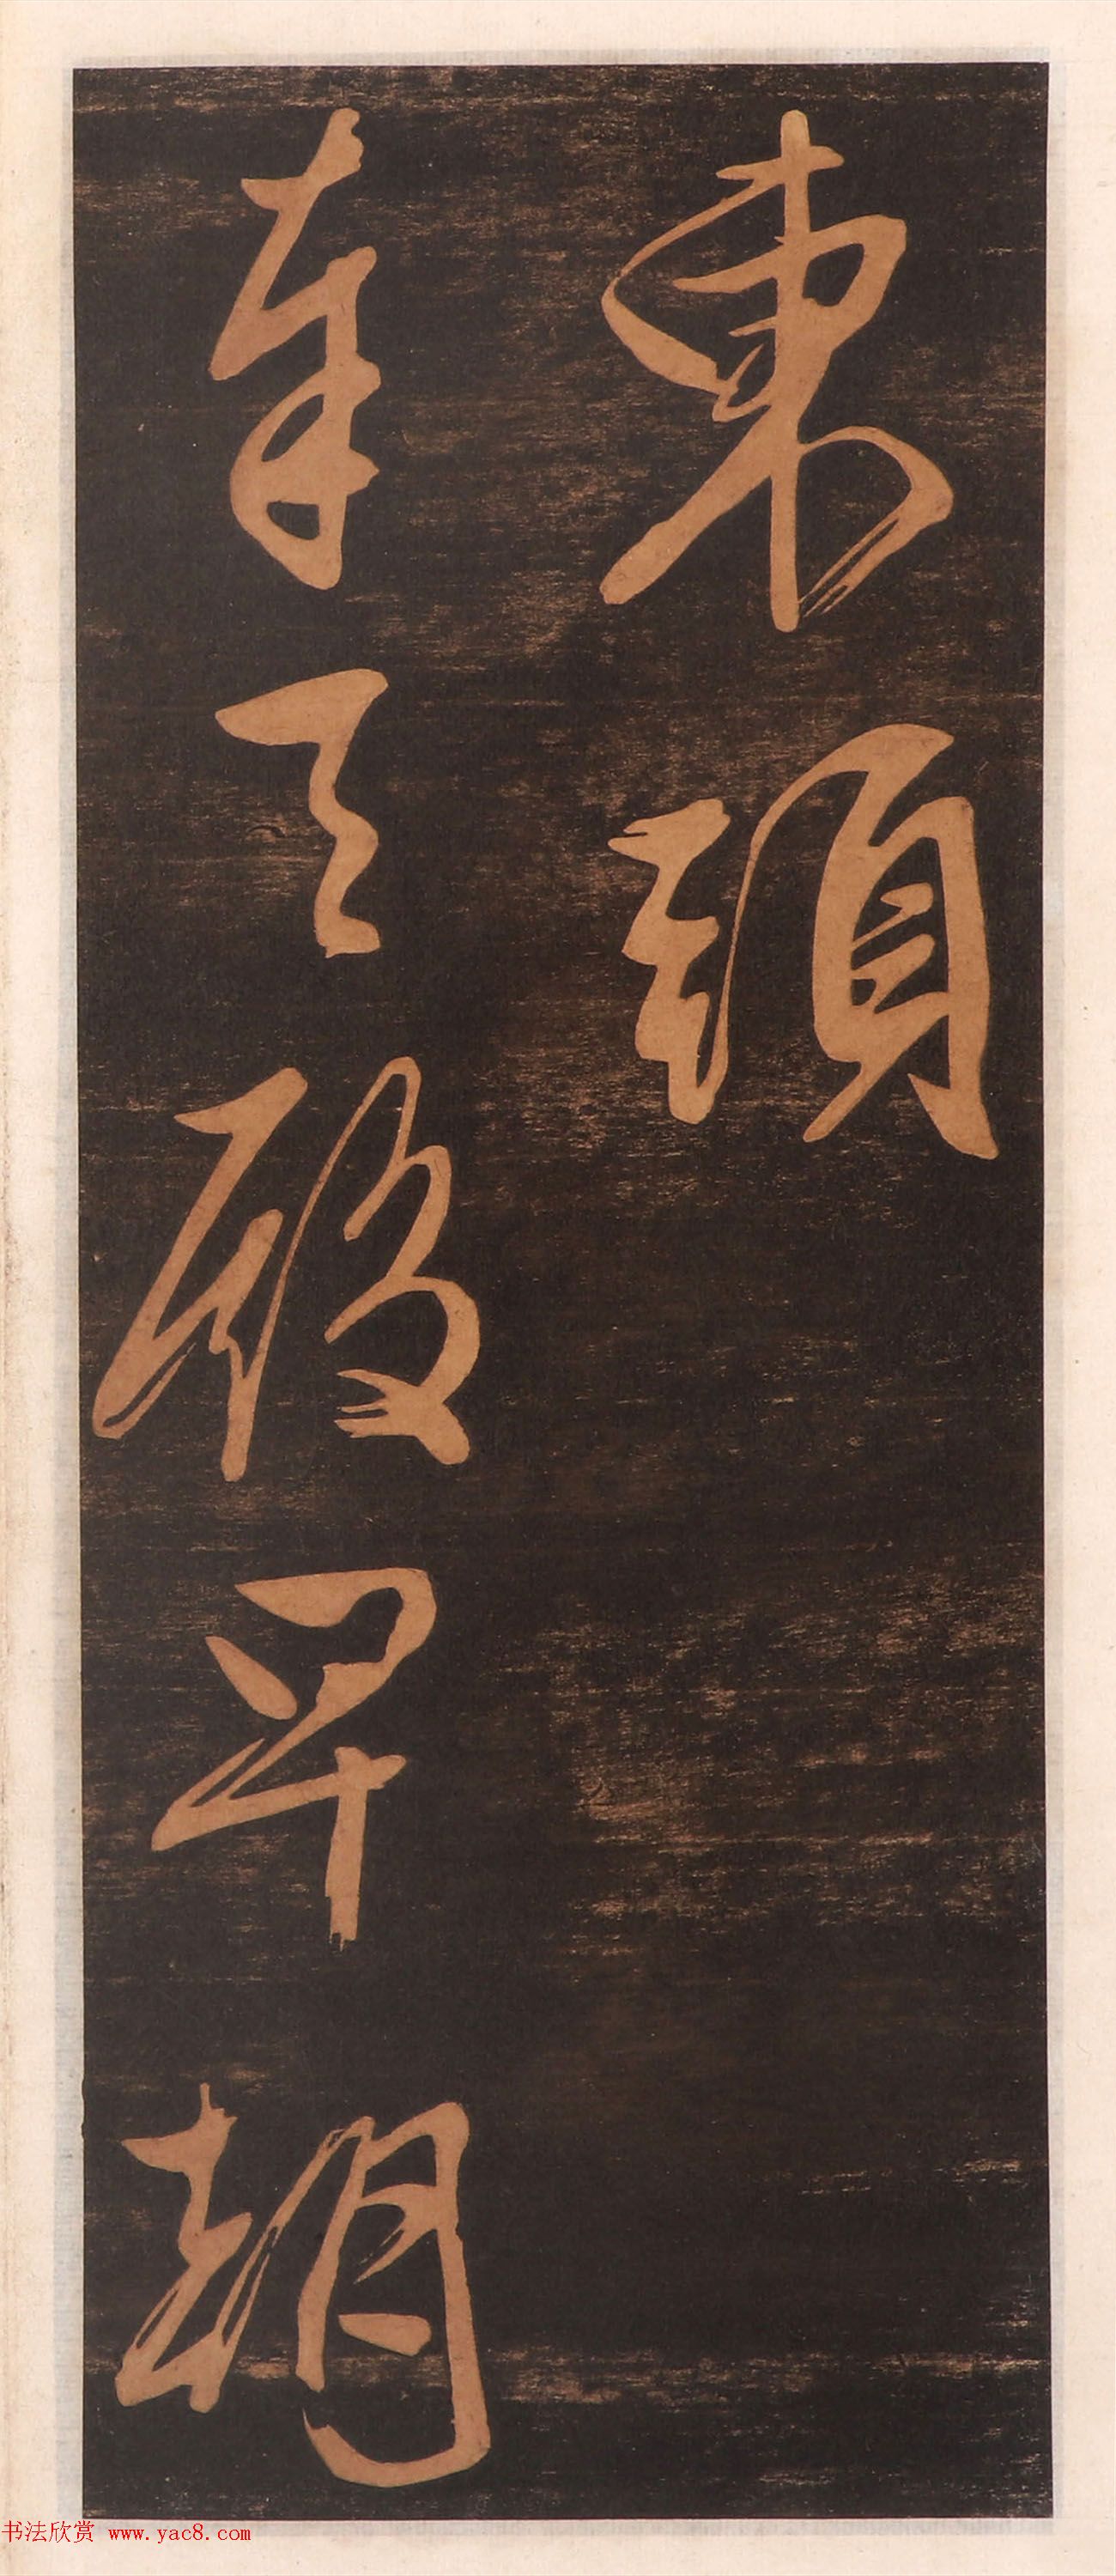 東頭
奉天殿早朝
书法欣赏 www.yac8.com